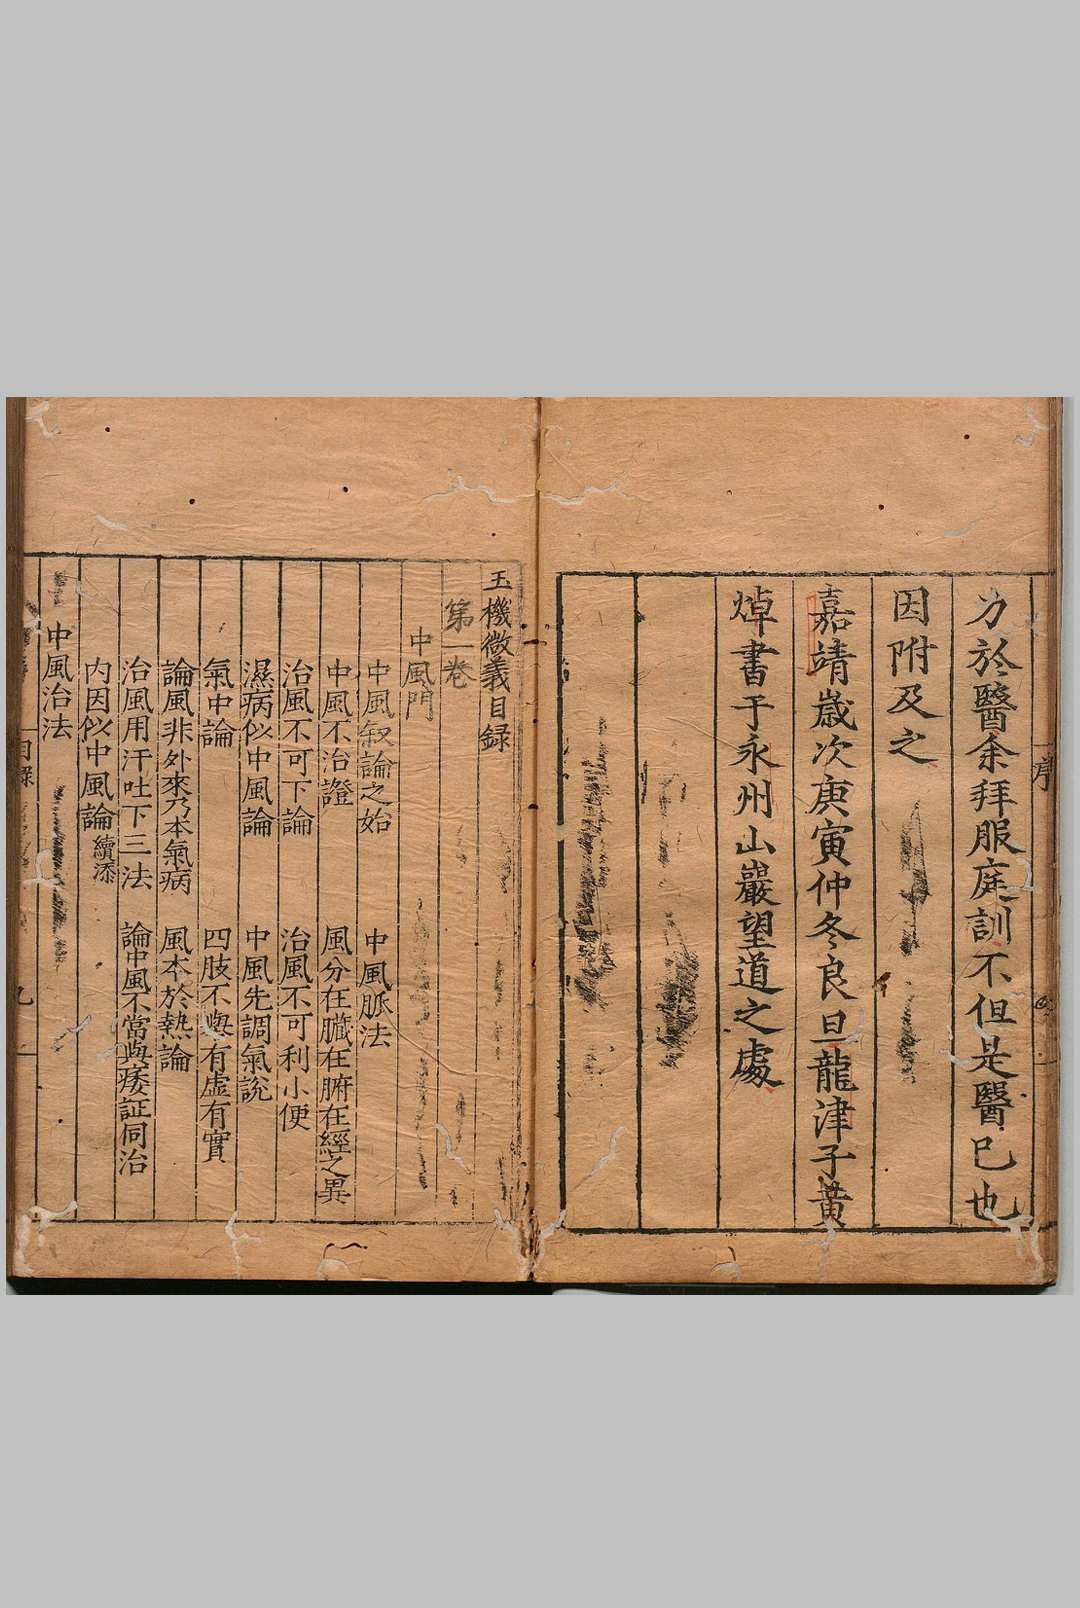 力於醫余拜服庭訓不但是醫已也
因附及之
嘉靖歲次庚寅仲冬良旦龍津子黃
焯書于永州山巖望道之處
序
玉機微義目録
第一卷
中風門
中風叙論之始 中風脈法
中風不治證 風分在臓在腑在經之異
治風不可下論 治風不可利小便
濕病似中風論 中風先調氣説
氣中論 四肢不舉有虛有實
論風非外來乃本氣病 風本於熱論
治風用汗吐下三法 論中風不當與痿証同治
内因似中風論續添
中風治法
目録